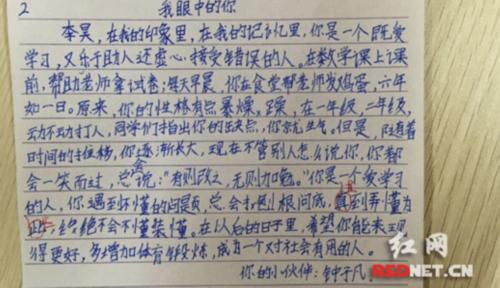 2
我眼中的你
李昊，在我的印象里，在我的记忆里，你是一个既爱
学习，又乐于助人还虚心接受错误的人。在数学课上课
前，帮助老师拿试卷；每天早晨，你在食堂帮老师发鸡蛋，六年
如一日。原来，你的性格有点暴燥。躁，在一年级，二年级，
动不动打人，同学们指出你的缺点，你就生气。但是，随着
时间的推移，你逐渐长大，现在不管别人怎么说你，你都
会一笑而过，总会说："有则改之，无则加勉。"你是一个爱学习
的人，你遇到不懂的问题，总会打刨根问底，直到弄懂为
止，绝不会不懂装懂。在以后的日子里，希望你能表现
得更好，多增加体育锻炼，成为一个对社会有用的人。
你的小伙伴：钟子凡
红网
REDNET.CN